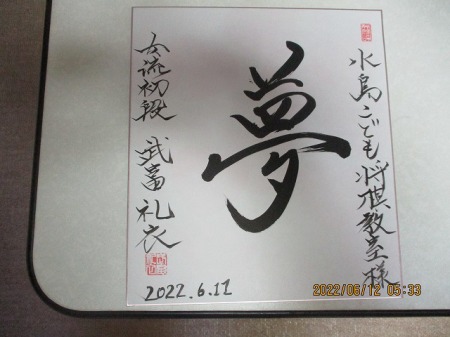 水島こども将棋教室様
夢
女流初段 武富礼衣
2022.6.11
2022/06/12 05:33